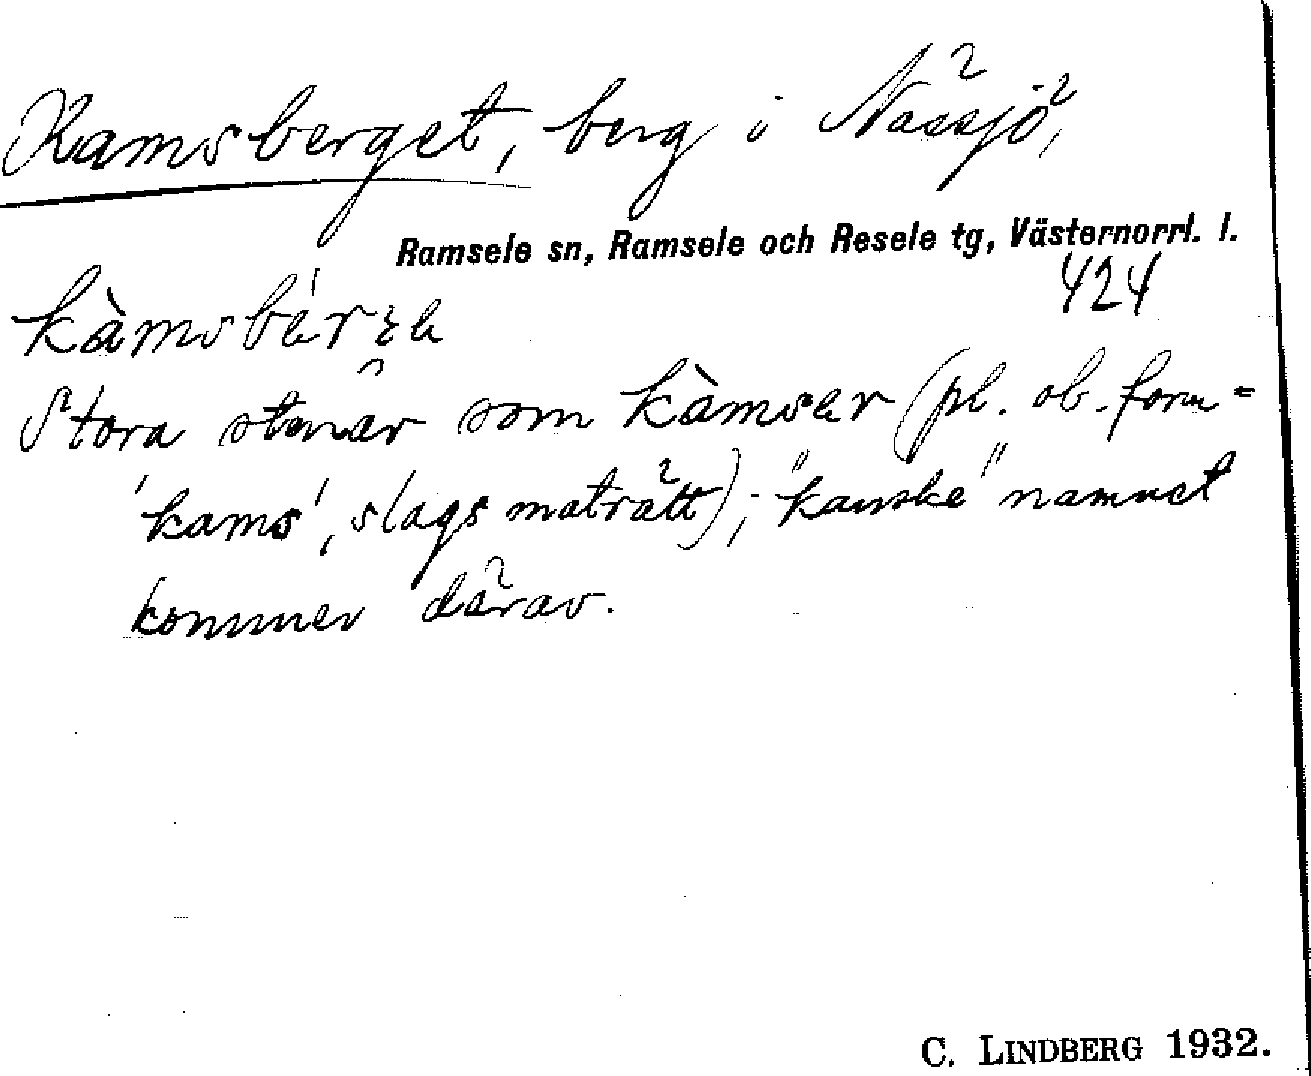 Kamsberget, berg i Nässjö,
Ramsele sn, Ramsele och Resele tg, Västernorrl. l.
424
Stora stenar som kàmser (pl. ob. form =
'kams', slags maträtt); "kanske" namnet
kommer därav.
C. LINDBERG 1932.